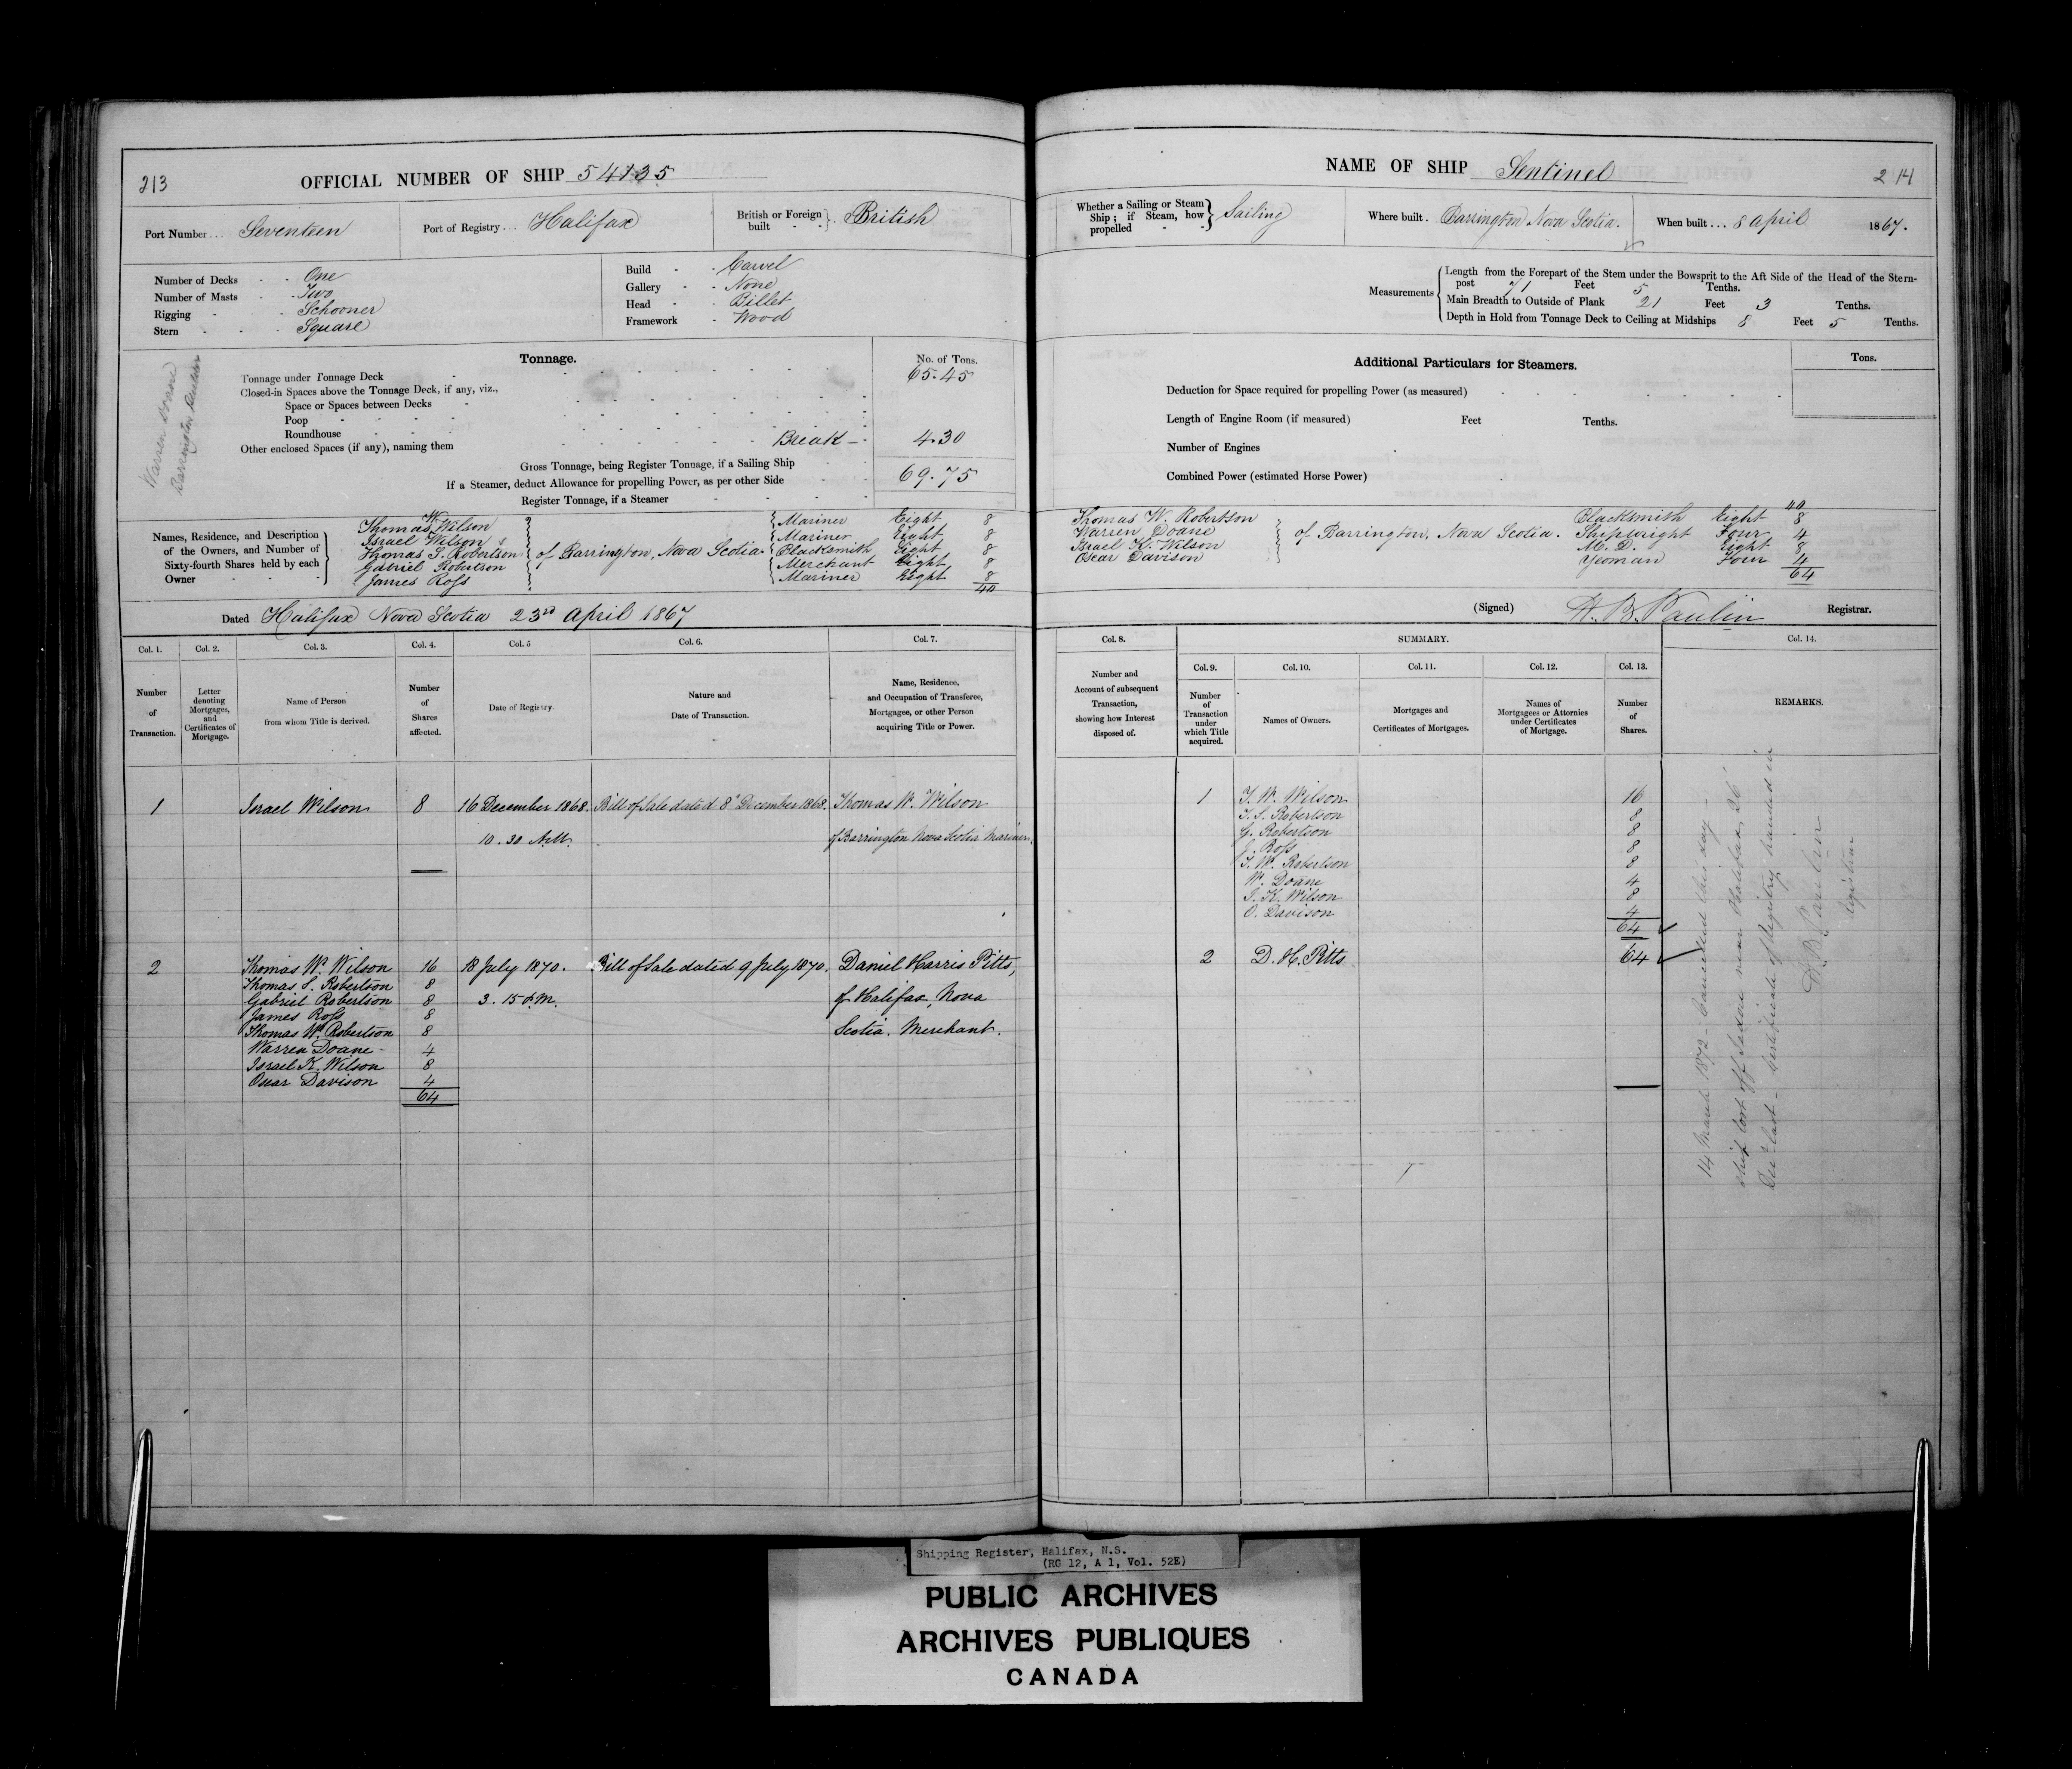 213
OFFICIAL NUMBER OF SHIP 54135
Port Number... Seventeen
Port of Registry... Halifax
British or Foreign built - - British
Number of Decks - - One
Number of Masts - - Two
Rigging - - Schooner
Stern - - - Square
Build - - Carvel
Gallery - - None
Head - - Billet
Framework - Wood
Tonnage.
No. of Tons.
Tonnage under Tonnage Deck 65.45
Closed-in Spaces above the Tonnage Deck, if any, viz.,
Space or Spaces between Decks
Poop
Roundhouse
Other enclosed Spaces (if any), naming them Break 4.30
Gross Tonnage, being Register Tonnage, if a Sailing Ship 69.75
If a Steamer, deduct Allowance for propelling Power, as per other Side
Register Tonnage, if a Steamer
Warren Doane
Barrington Builder
Names, Residence, and Description of the Owners, and Number of Sixty-fourth Shares held by each Owner
Thomas W. Wilson Mariner Eight 8
Israel Wilson Mariner Eight 8
Thomas S. Robertson of Barrington, Nova Scotia. Blacksmith Eight 8
Gabriel Robertson Merchant Eight 8
James Ross Mariner Eight 8
40
Dated Halifax Nova Scotia 23rd April 1867
Col. 1. Col. 2. Col. 3. Col. 4. Col. 5 Col. 6. Col. 7.
Number of Transaction.
Letter denoting Mortgages, and Certificates of Mortgage.
Name of Person from whom Title is derived.
Number of Shares affected.
Date of Registry.
Nature and Date of Transaction.
Name, Residence, and Occupation of Transferee, Mortgagee, or other Person acquiring Title or Power.
1 Israel Wilson 8 16 December 1868. Bill of Sale dated 8th December 1868. Thomas W. Wilson
10.30 A.M. of Barrington Nova Scotia Mariner.
2 Thomas W. Wilson 16 18 July 1870. Bill of Sale dated 9 July 1870. Daniel Harris Pitts,
Thomas S. Robertson 8
Gabriel Robertson 8 3.15 P.M. of Halifax, Nova
James Ross 8
Thomas W. Robertson 8 Scotia. Merchant.
Warren Doane 4
Israel K. Wilson 8
Oscar Davison 4
64
NAME OF SHIP Sentinel
214
Whether a Sailing or Steam Ship; if Steam, how propelled - - Sailing
Where built. Barrington Nova Scotia.
When built... 8 April 1867.
Measurements
Length from the Forepart of the Stem under the Bowsprit to the Aft Side of the Head of the Stern-
post 71 Feet 5 Tenths.
Main Breadth to Outside of Plank 21 Feet 3 Tenths.
Depth in Hold from Tonnage Deck to Ceiling at Midships 8 Feet 5 Tenths.
Additional Particulars for Steamers.
Tons.
Deduction for Space required for propelling Power (as measured)
Length of Engine Room (if measured) Feet Tenths.
Number of Engines
Combined Power (estimated Horse Power)
40
Thomas W. Robertson Blacksmith Eight 8
Warren Doane of Barrington, Nova Scotia. Shipwright Four 4
Israel K. Wilson M.D. Eight 8
Oscar Davison Yeoman Four 4
64
(Signed) H. B. Paulin Registrar.
Col. 8. SUMMARY. Col. 14.
Col. 9. Col. 10. Col. 11. Col. 12. Col. 13.
Number and Account of subsequent Transaction, showing how Interest disposed of.
Number of Transaction under which Title acquired.
Names of Owners.
Mortgages and Certificates of Mortgages.
Names of Mortgagees or Attornies under Certificates of Mortgage.
Number of Shares.
REMARKS.
1 T. W. Wilson 16
T. S. Robertson 8
G. Robertson 8
J. Ross 8
T. W. Robertson 8
W. Doane 4
I. K. Wilson 8
O. Davison 4
64
2 D. H. Pitts 64
14 March 1872 - Cancelled this day -
Ship lost off near Halifax, 26
Decr last - Certificate of Registry handed in
H B Paulin
Registrar
Shipping Register, Halifax, N.S.
(RG 12, A 1, Vol. 52E)
PUBLIC ARCHIVES
ARCHIVES PUBLIQUES
CANADA